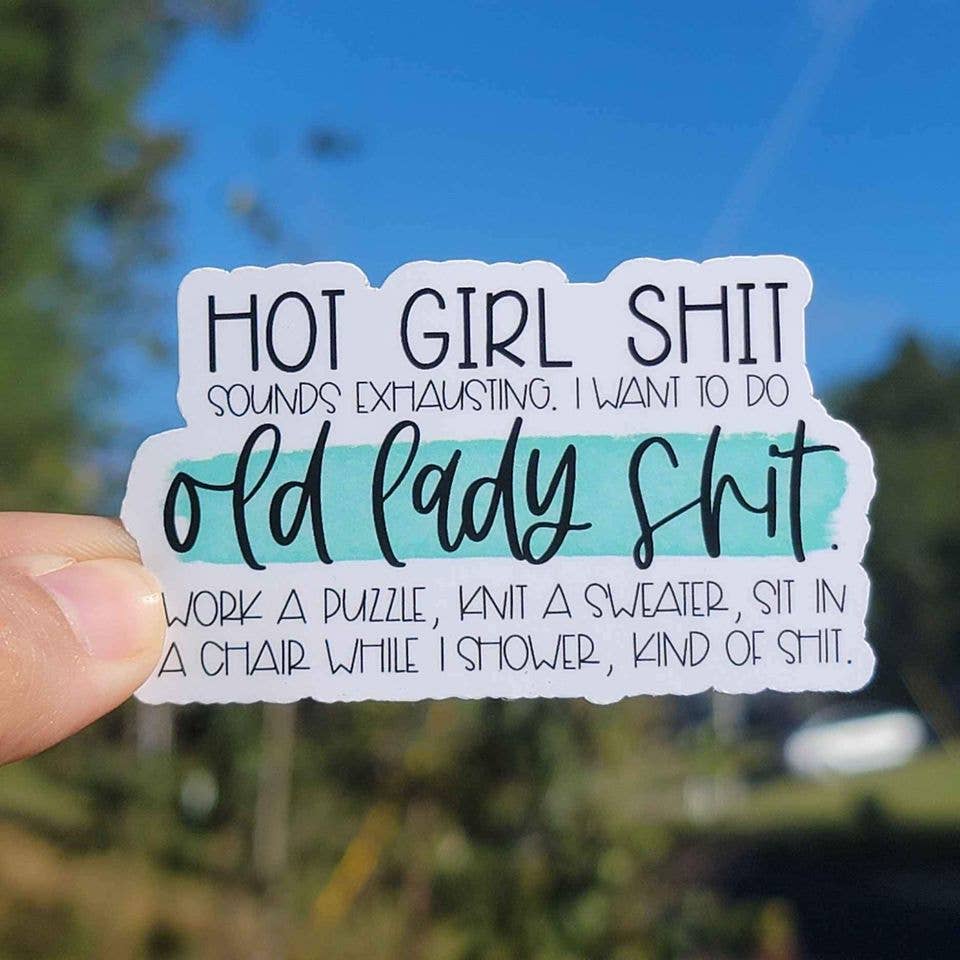 HOT GIRL SHIT
SOUNDS EXHAUSTING. I WANT TO DO
old lady shit.
WORK A PUZZLE, KNIT A SWEATER, SIT IN
A CHAIR WHILE I SHOWER, KIND OF SHIT.